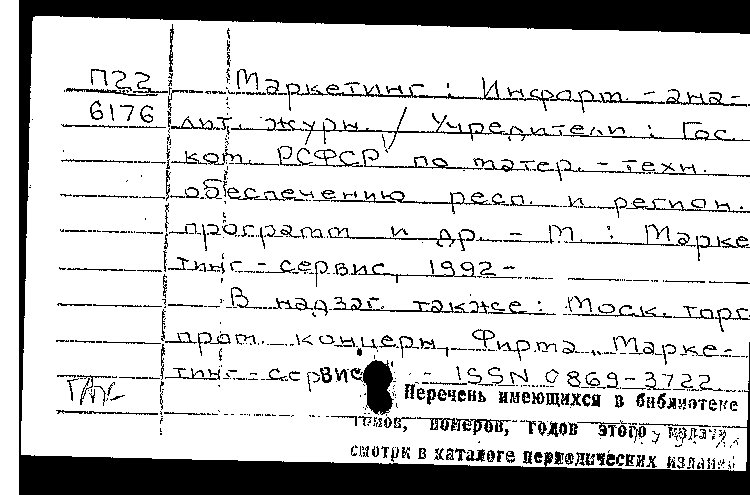 П22
6176
Маркетинг : Информ.-ана-
лит. журн. / Учредители : Гос.
ком. РСФСР по матер.-техн.
обеспечению респ. и регион.
программ и др. - М. : Марке-
тинг-сервис, 1992-
В надзаг. также: Моск. торг.
пром. концерн, Фирма „Марке-
тинг-сервис - ISSN 0869-3722
Перечень имеющихся в библиотеке
томов, номеров, годов этого издания
смотри в каталоге периодических изданий